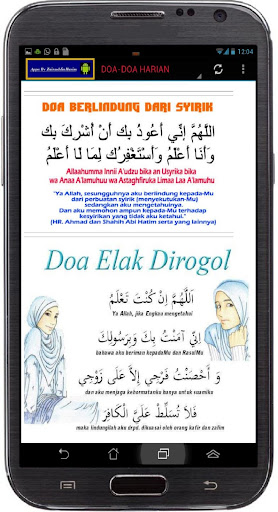 12:04
DOA-DOA HARIAN
DOA BERLINDUNG DARI SYIRIK
اللَّهُمَّ إِنِّي أَعُوذُ بِكَ أَنْ أُشْرِكَ بِكَ
وَأَنَا أَعْلَمُ وَأَسْتَغْفِرُكَ لِمَا لَا أَعْلَمُ
Allaahumma Innii A'udzu bika an Usyrika bika
wa Anaa A'lamuhuu wa Astaghfiruka Limaa Laa A'lamuhu
"Ya Allah, sesungguhnya aku berlindung kepada-Mu
dari perbuatan syirik (menyekutukan-Mu)
sedangkan aku mengetahuinya.
Dan aku memohon ampun kepada-Mu terhadap
kesyirikan yang tidak aku ketahui."
(HR. Ahmad dan Shahih Abi Hatim serta yang lainnya)
Doa Elak Dirogol
اَللَّهُمَّ إِنْ كُنْتَ تَعْلَمُ
Ya Allah, jika Engkau mengetahui
إِنِّي آمَنْتُ بِكَ وَبِرَسُولِكَ
bahawa aku beriman kepadaMu dan RasulMu
وَ أَحْصَنْتُ فَرْجِي إِلاَّ عَلَى زَوْجِي
dan aku menjaga kehormatanku hanya untuk suamiku
فَلاَ تُسَلِّطْ عَلَيَّ الْكَافِرَ
maka lindungilah aku drpd. dikuasai oleh orang kafir dan zalim